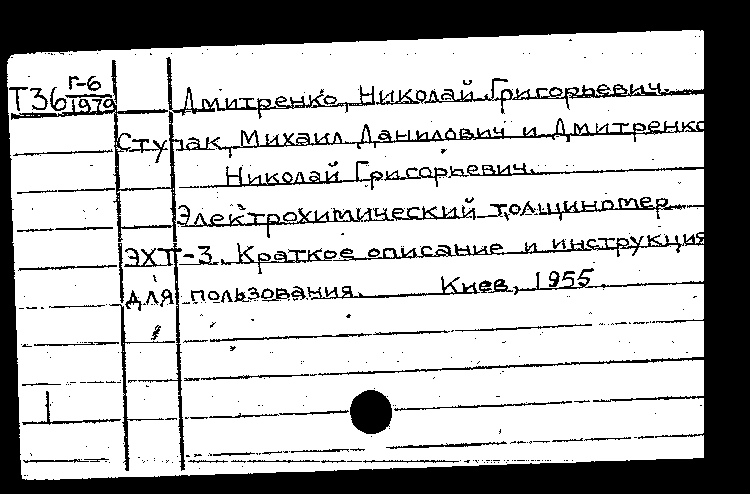 Т36 Г-6/1979
Дмитренко, Николай Григорьевич.
Ступак, Михаил Данилович и Дмитренко
Николай Григорьевич.
Электрохимический толщиномер
ЭХТ-3. Краткое описание и инструкция
для пользования. Киев, 1955.